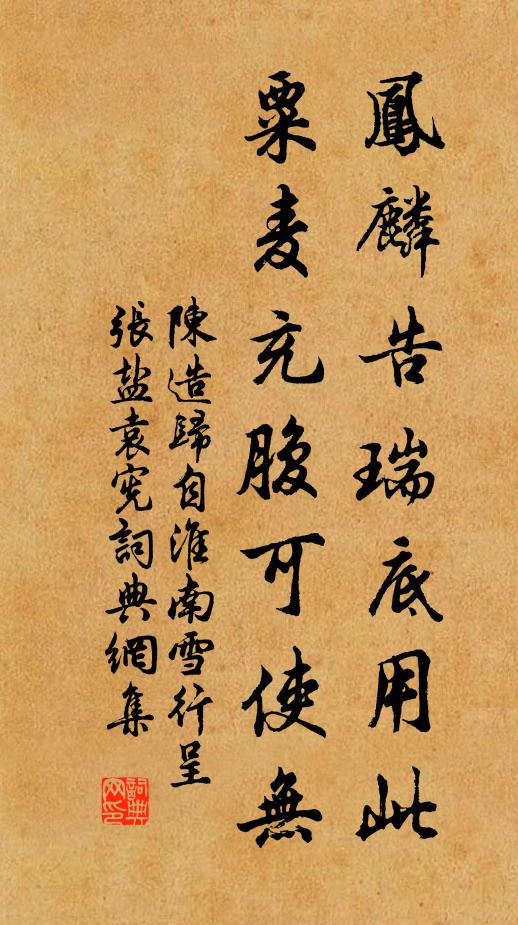 鳳麟告瑞底用此
粟麦充腹可使無
陳造歸自淮南雪行呈
張盐袁宪詞典網集
詞典网印